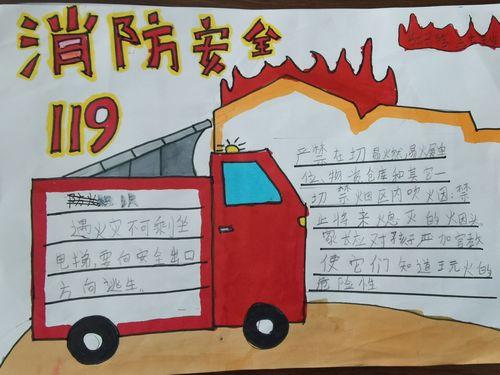 消防安全
119
遇火灾不可乘坐
电梯,要向安全出口
方向逃生.
严禁在切易燃,易火爆单
位,物资仓库和其它一
切禁烟区内吹火烟.禁
止将来熄灭的烟头.
家长应对孩子严加管教
使它们知道玩火的
危险性